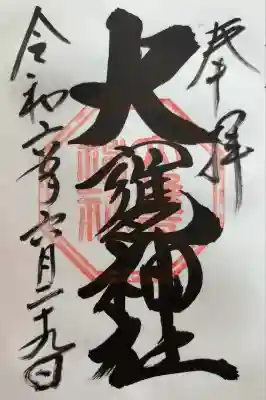 奉拝
大甕神社
令和六年六月二十九日